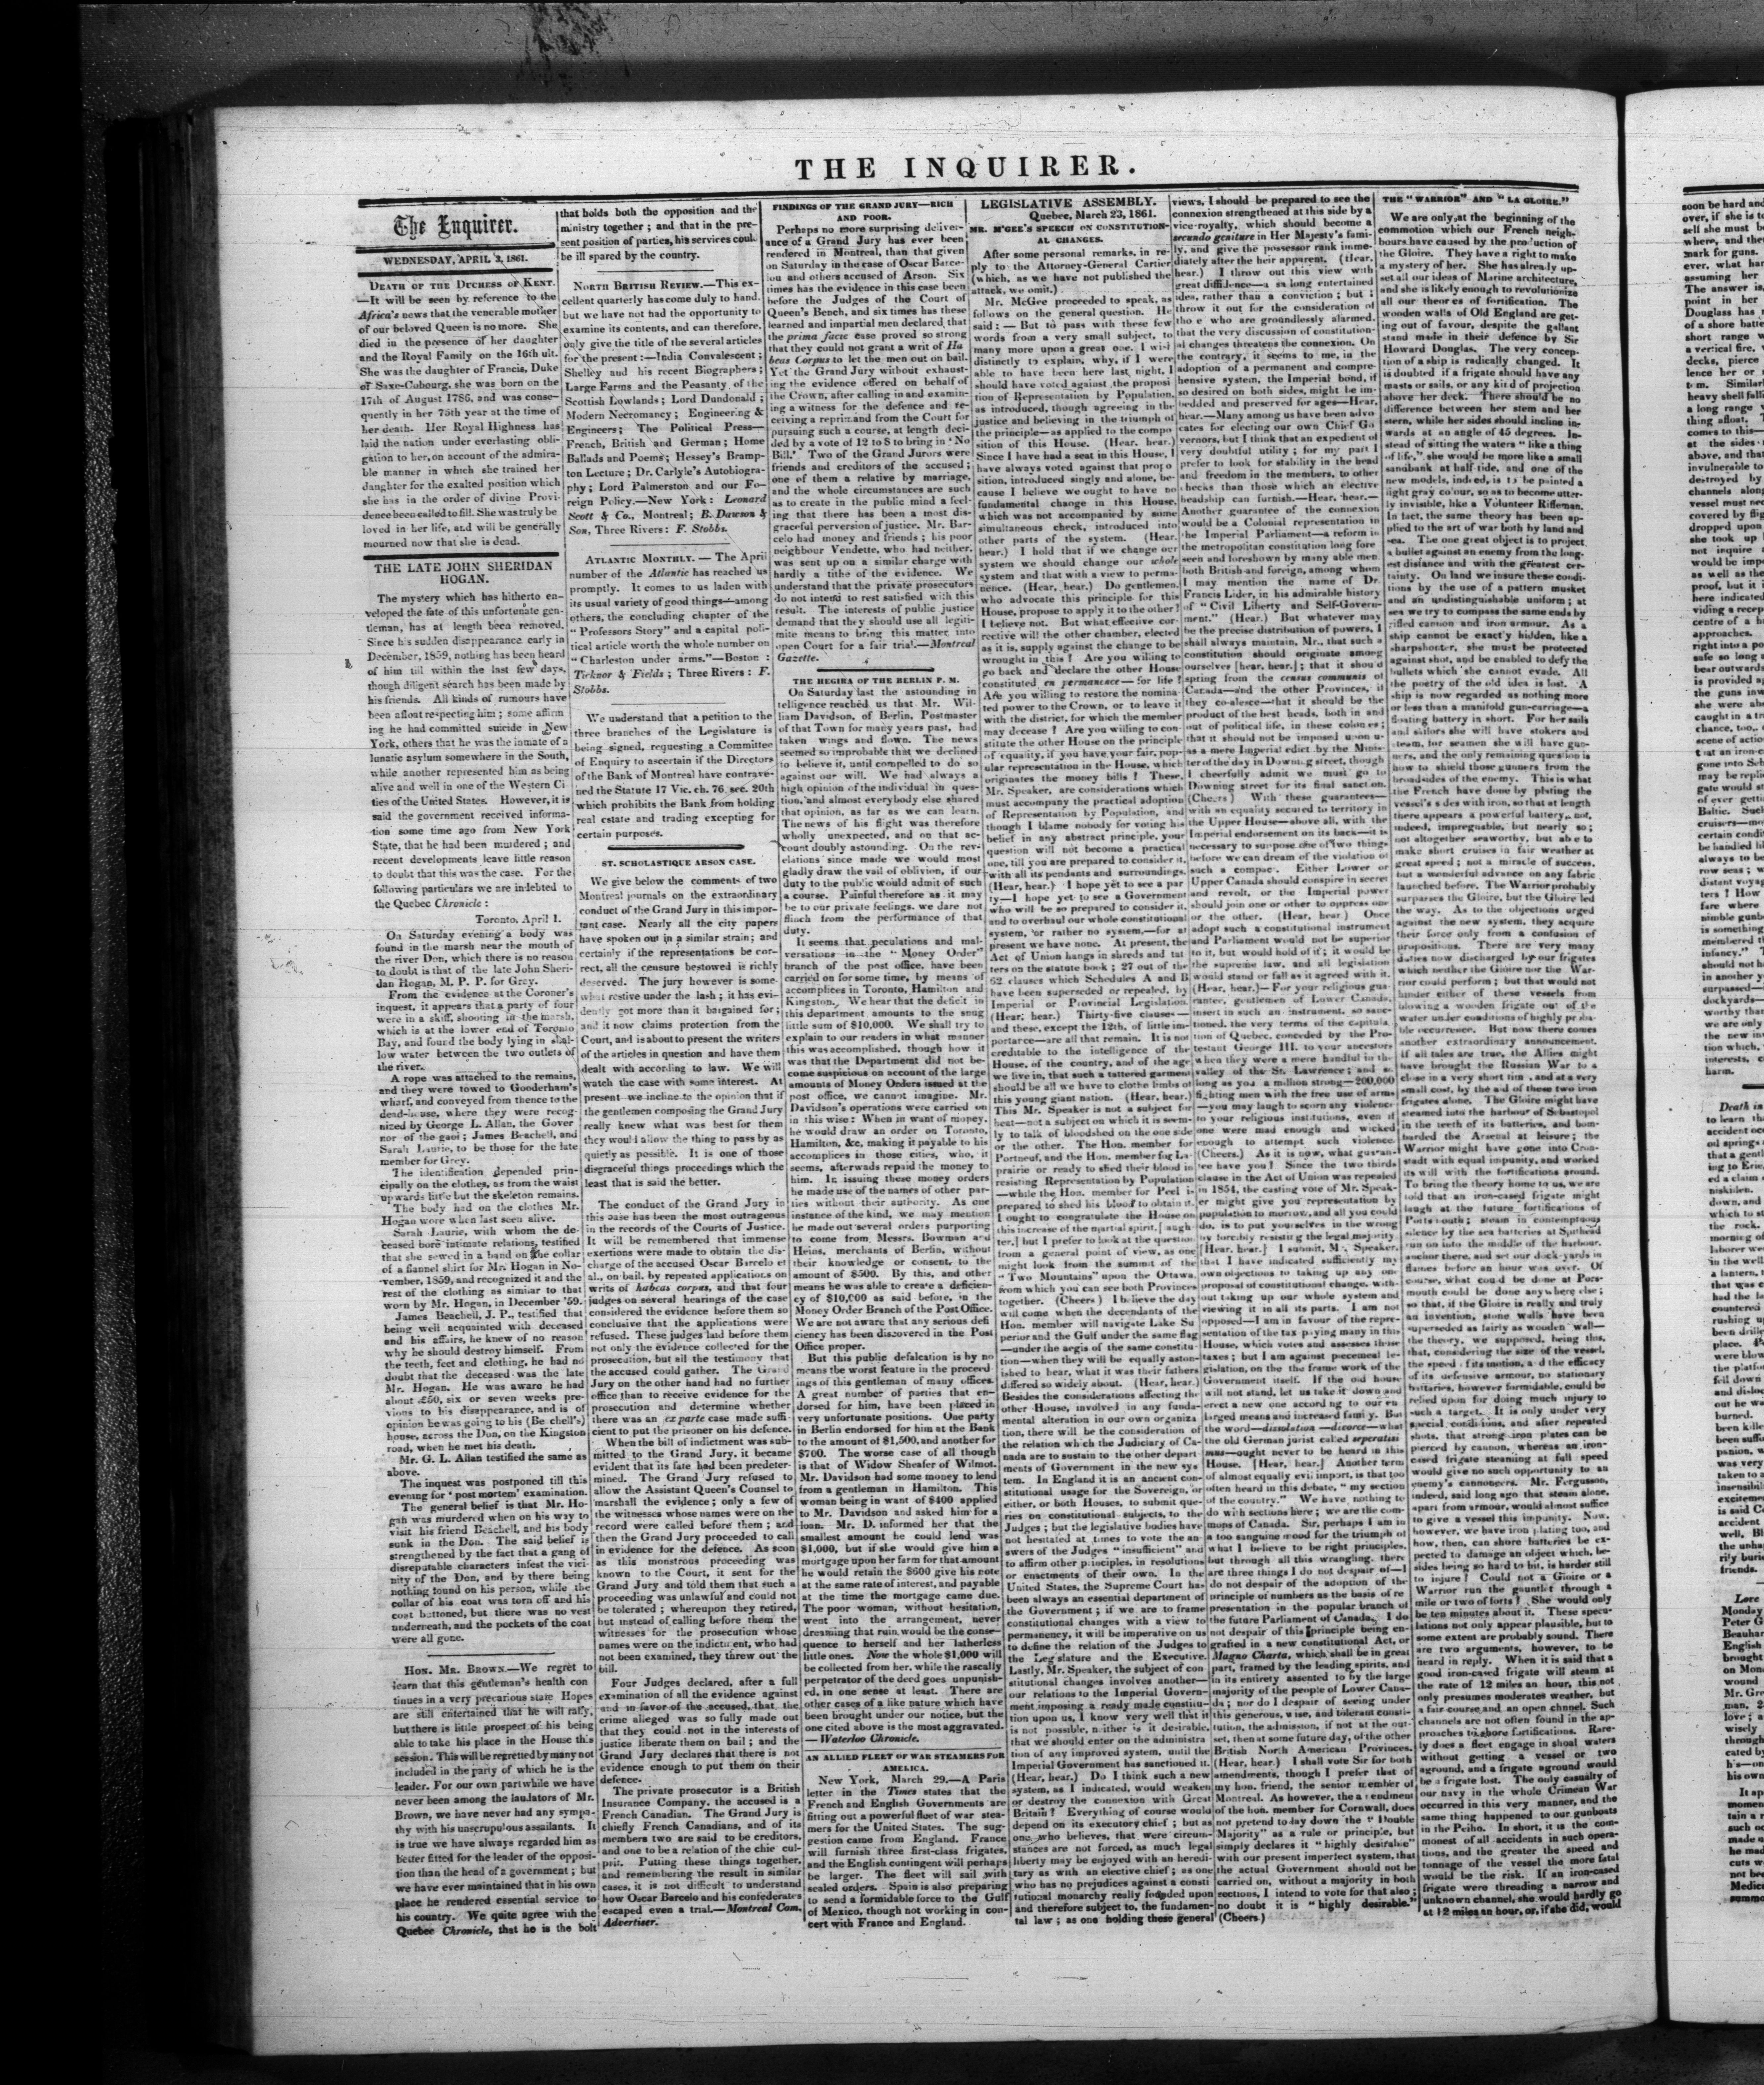 THE INQUIRER.
The Enquirer.
WEDNESDAY, APRIL 3, 1861.
DEATH OF THE DUCHESS OF KENT.
—It will be seen by reference to the
Africa's news that the venerable mother
of our beloved Queen is no more. She
died in the presence of her daughter
and the Royal Family on the 16th ult.
She was the daughter of Francis, Duke
of Saxe-Cobourg, she was born on the
17th of August 1786, and was conse-
quently in her 75th year at the time of
her death. Her Royal Highness has
laid the nation under everlasting obli-
gation to her, on account of the admira-
ble manner in which she trained her
daughter for the exalted position which
she has in the order of divine Provi-
dence been called to fill. She was truly be
loved in her life, and will be generally
mourned now that she is dead.
THE LATE JOHN SHERIDAN
HOGAN.
The mystery which has hitherto en-
veloped the fate of this unfortunate gen-
tleman, has at length been removed.
Since his sudden disappearance early in
December, 1859, nothing has been heard
of him till within the last few days,
though diligent search has been made by
his friends. All kinds of rumours have
been afloat respecting him; some affirm
ing he had committed suicide in New
York, others that he was the inmate of a
lunatic asylum somewhere in the South,
while another represented him as being
alive and well in one of the Western Ci
ties of the United States. However, it is
said the government received informa-
tion some time ago from New York
State, that he had been murdered; and
recent developments leave little reason
to doubt that this was the case. For the
following particulars we are indebted to
the Quebec Chronicle:
Toronto, April 1.
On Saturday evening a body was
found in the marsh near the mouth of
the river Don, which there is no reason
to doubt is that of the late John Sheri-
dan Hogan, M. P. P. for Grey.
From the evidence at the Coroner's
inquest, it appears that a party of four
were in a skiff, shooting in the marsh,
which is at the lower end of Toronto
Bay, and found the body lying in shal-
low water between the two outlets of
the river.
A rope was attached to the remains,
and they were towed to Gooderham's
wharf, and conveyed from thence to the
dead-house, where they were recog-
nized by George L. Allan, the Gover
nor of the gaol; James Beachell, and
Sarah Laurie, to be those for the late
member for Grey.
The identification depended prin-
cipally on the clothes, as from the waist
upwards little but the skeleton remains.
The body had on the clothes Mr.
Hogan wore when last seen alive.
Sarah Laurie, with whom the de-
ceased bore intimate relations, testified
that she sewed in a band on the collar
of a flannel shirt for Mr. Hogan in No-
vember, 1859, and recognized it and the
rest of the clothing as similar to that
worn by Mr. Hogan, in December '59.
James Beachell, J. P., testified that
being well acquainted with deceased
and his affairs, he knew of no reason
why he should destroy himself. From
the teeth, feet and clothing, he had no
doubt that the deceased was the late
Mr. Hogan. He was aware he had
about £50, six or seven weeks pre-
vious to his disappearance, and is of
opinion he was going to his (Be chell's)
house, across the Don, on the Kingston
road, when he met his death.
Mr. G. L. Allan testified the same as
above.
The inquest was postponed till this
evening for 'post mortem' examination.
The general belief is that Mr. Ho-
gan was murdered when on his way to
visit his friend Beachell, and his body
sunk in the Don. The said belief is
strengthened by the fact that a gang of
disreputable characters infest the vici-
nity of the Don, and by there being
nothing found on his person, while the
collar of his coat was torn off and his
coat buttoned, but there was no vest
underneath, and the pockets of the coat
were all gone.
HON. MR. BROWN.—We regret to
learn that this gentleman's health con
tinues in a very precarious state Hopes
are still entertained that he will rally,
but there is little prospect of his being
able to take his place in the House this
session. This will be regretted by many not
included in the party of which he is the
leader. For our own part while we have
never been among the laudators of Mr.
Brown, we have never had any sympa-
thy with his unscrupulous assailants. It
is true we have always regarded him as
better fitted for the leader of the opposi-
tion than the head of a government; but
we have ever maintained that in his own
place he rendered essential service to
his country. We quite agree with the
Quebec Chronicle, that he is the bolt
that holds both the opposition and the
ministry together; and that in the pre-
sent position of parties, his services coul.
be ill spared by the country.
NORTH BRITISH REVIEW.—This ex-
cellent quarterly has come duly to hand,
but we have not had the opportunity to
examine its contents, and can therefore,
only give the title of the several articles
for the present:—India Convalescent;
Shelley and his recent Biographers;
Large Farms and the Peasanty of the
Scottish Lowlands; Lord Dundonald;
Modern Necromancy; Engineering &
Engineers; The Political Press—
French, British and German; Home
Ballads and Poems; Hessey's Bramp-
ton Lecture; Dr. Carlyle's Autobiogra-
phy; Lord Palmerston and our Fo-
reign Policy.—New York: Leonard
Scott & Co., Montreal; B. Dawson &
Son, Three Rivers: F. Stobbs.
ATLANTIC MONTHLY. — The April
number of the Atlantic has reached us
promptly. It comes to us laden with
its usual variety of good things—among
others, the concluding chapter of the
"Professors Story" and a capital poli-
tical article worth the whole number on
"Charleston under arms."—Boston:
Ticknor & Fields; Three Rivers: F.
Stobbs.
We understand that a petition to the
three branches of the Legislature is
being signed, requesting a Committee
of Enquiry to ascertain if the Directors
of the Bank of Montreal have contrave-
ned the Statute 17 Vic. ch. 76 sec. 20th
which prohibits the Bank from holding
real estate and trading excepting for
certain purposes.
ST. SCHOLASTIQUE ARSON CASE.
We give below the comments of two
Montreal journals on the extraordinary
conduct of the Grand Jury in this impor-
tant case. Nearly all the city papers
have spoken out in a similar strain; and
certainly if the representations be cor-
rect, all the censure bestowed is richly
deserved. The jury however is some-
what restive under the lash; it has evi-
dently got more than it bargained for;
and it now claims protection from the
Court, and is about to present the writers
of the articles in question and have them
dealt with according to law. We will
watch the case with some interest. At
present we incline to the opinion that if
the gentlemen composing the Grand Jury
really knew what was best for them
they would allow the thing to pass by as
quietly as possible. It is one of those
disgraceful things proceedings which the
least that is said the better.
The conduct of the Grand Jury in
this case has been the most outrageous
in the records of the Courts of Justice.
It will be remembered that immense
exertions were made to obtain the dis-
charge of the accused Oscar Barcelo et
al., on bail, by repeated applications on
writs of habeas corpus, and that four
judges on several hearings of the case
considered the evidence before them so
conclusive that the applications were
refused. These judges laid before them
not only the evidence collected for the
prosecution, but all the testimony that
the accused could gather. The Grand
Jury on the other hand had no further
office than to receive evidence for the
prosecution and determine whether
there was an ex parte case made suffi-
cient to put the prisoner on his defence.
When the bill of indictment was sub-
mitted to the Grand Jury, it became
evident that its fate had been predeter-
mined. The Grand Jury refused to
allow the Assistant Queen's Counsel to
marshall the evidence; only a few of
the witnesses whose names were on the
record were called before them; and
then the Grand Jury proceeded to call
in evidence for the defence. As soon
as this monstrous proceeding was
known to the Court, it sent for the
Grand Jury and told them that such a
proceeding was unlawful and could not
be tolerated; whereupon they retired,
but instead of calling before them the
witnesses for the prosecution whose
names were on the indictment, who had
not been examined, they threw out the
bill.
Four Judges declared, after a full
examination of all the evidence against
and in favor of the accused, that the
crime alleged was so fully made out
that they could not in the interests of
justice liberate them on bail; and the
Grand Jury declares that there is not
evidence enough to put them on their
defence.
The private prosecutor is a British
Insurance Company, the accused is a
French Canadian. The Grand Jury is
chiefly French Canadians, and of its
members two are said to be creditors,
and one to be a relation of the chie cul-
prit. Putting these things together,
and remembering the result in similar
cases, it is not difficult to understand
how Oscar Barcelo and his confederates
escaped even a trial.—Montreal Com.
Advertiser.
FINDINGS OF THE GRAND JURY—RICH
AND POOR.
Perhaps no more surprising deliver-
ance of a Grand Jury has ever been
rendered in Montreal, than that given
on Saturday in the case of Oscar Barce-
lou and others accused of Arson. Six
times has the evidence in this case been
before the Judges of the Court of
Queen's Bench, and six times has these
learned and impartial men declared that
the prima facie case proved so strong
that they could not grant a writ of Ha
beas Corpus to let the men out on bail.
Yet the Grand Jury without exhaust-
ing the evidence offered on behalf of
the Crown, after calling in and examin-
ing a witness for the defence and re-
ceiving a reprimand from the Court for
pursuing such a course, at length deci-
ded by a vote of 12 to 8 to bring in 'No
Bill.' Two of the Grand Jurors were
friends and creditors of the accused;
one of them a relative by marriage,
and the whole circumstances are such
as to create in the public mind a feel-
ing that there has been a most dis-
graceful perversion of justice. Mr. Bar-
celo had money and friends; his poor
neighbour Vendette, who had neither,
was sent up on a similar charge with
hardly a tithe of the evidence. We
understand that the private prosecutors
do not intend to rest satisfied with this
result. The interests of public justice
demand that they should use all legiti-
mite means to bring this matter into
open Court for a fair trial.—Montreal
Gazette.
THE HEGIRA OF THE BERLIN P. M.
On Saturday last the astounding in
telligence reached us that Mr. Wil-
liam Davidson, of Berlin, Postmaster
of that Town for many years past, had
taken wings and flown. The news
seemed so improbable that we declined
to believe it, until compelled to do so
against our will. We had always a
high opinion of the individual in ques-
tion, and almost everybody else shared
that opinion, as far as we can learn.
The news of his flight was therefore
wholly unexpected, and on that ac-
count doubly astounding. On the rev-
elations since made we would most
gladly draw the vail of oblivion, if our
duty to the public would admit of such
a course. Painful therefore as it may
be to our private feelings, we dare not
flinch from the performance of that
duty.
It seems that peculations and mal-
versations in the "Money Order"
branch of the post office, have been
carried on for some time, by means of
accomplices in Toronto, Hamilton and
Kingston. We hear that the deficit in
this department amounts to the snug
little sum of $10,000. We shall try to
explain to our readers in what manner
this was accomplished, though how it
was that the Department did not be-
come suspicious on account of the large
amounts of Money Orders issued at the
post office, we cannot imagine. Mr.
Davidson's operations were carried on
in this wise: When in want of money,
he would draw an order on Toronto,
Hamilton, &c, making it payable to his
accomplices in those cities, who, it
seems, afterwads repaid the money to
him. In issuing these money orders
he made use of the names of other par-
ties without their authority. As one
instance of the kind, we may mention
he made out several orders purporting
to come from Messrs. Bowman and
Heins, merchants of Berlin, without
their knowledge or consent, to the
amount of $500. By this, and other
means he was able to create a deficien-
cy of $10,000 as said before, in the
Money Order Branch of the Post Office.
We are not aware that any serious defi
ciency has been discovered in the Post
Office proper.
But this public defalcation is by no
means the worst feature in the proceed
ings of this gentleman of many offices.
A great number of parties that en-
dorsed for him, have been placed in
very unfortunate positions. One party
in Berlin endorsed for him at the Bank
to the amount of $1,500, and another for
$700. The worse case of all though
is that of Widow Sheafer of Wilmot.
Mr. Davidson had some money to lend
from a gentleman in Hamilton. This
woman being in want of $400 applied
to Mr. Davidson and asked him for a
loan. Mr. D. informed her that the
smallest amount he could lend was
$1,000, but if she would give him a
mortgage upon her farm for that amount
he would retain the $600 give his note
at the same rate of interest, and payable
at the time the mortgage came due.
The poor woman, without hesitation,
went into the arrangement, never
dreaming that ruin would be the conse-
quence to herself and her fatherless
little ones. Now the whole $1,000 will
be collected from her, while the rascally
perpetrator of the deed goes unpunish-
ed, in one sense at least. There are
other cases of a like nature which have
been brought under our notice, but the
one cited above is the most aggravated.
—Waterloo Chronicle.
AN ALLIED FLEET OF WAR STEAMERS FOR
AMELICA.
New York, March 29.—A Paris
letter in the Times states that the
French and English Governments are
fitting out a powerful fleet of war stea-
mers for the United States. The sug-
gestion came from England. France
will furnish three first-class frigates,
and the English contingent will perhaps
be larger. The fleet will sail with
sealed orders. Spain is also preparing
to send a formidable force to the Gulf
of Mexico, though not working in con-
cert with France and England.
LEGISLATIVE ASSEMBLY.
Quebec, March 23, 1861.
MR. M'GEE'S SPEECH ON CONSTITUTION-
AL CHANGES.
After some personal remarks, in re-
ply to the Attorney-General Cartier
(which, as we have not published the
attack, we omit.)
Mr. McGee proceeded to speak, as
follows on the general question. He
said:—But to pass with these few
words from a very small subject, to
many more upon a great one. I wish
distinctly to explain, why, if I were
able to have been here last night, I
should have voted against the proposi
tion of Representation by Population,
as introduced, though agreeing in the
justice and believing in the triumph of
the principle—as applied to the compo
sition of this House. (Hear. hear.)
Since I have had a seat in this House, I
have always voted against that propo
sition, introduced singly and alone, be-
cause I believe we ought to have no
fundamental change in this House,
which was not accompanied by some
simultaneous check, introduced into
other parts of the system. (Hear.
hear.) I hold that if we change our
system we should change our whole
system and that with a view to perma-
nence. (Hear, hear.) Do gentlemen,
who advocate this principle for this
House, propose to apply it to the other?
I believe not. But what effective cor-
rective will the other chamber, elected
as it is, supply against the change to be
wrought in this? Are you willing to
go back and declare the other House
constituted en permanence—for life?
Are you willing to restore the nomina-
ted power to the Crown, or to leave it
with the district, for which the member
may decease? Are you willing to con-
stitute the other House on the principle
of equality, if you have your fair, pop-
ular representation in the House, which
originates the money bills? These,
Mr. Speaker, are considerations which
must accompany the practical adoption
of Representation by Population, and
though I blame nobody for voting his
belief in any abstract principle, your
question will not become a practical
one, till you are prepared to consider it,
with all its pendants and surroundings.
(Hear, hear.) I hope yet to see a par
ty—I hope yet to see a Government
who will be so prepared to consider it,
and to overhaul our whole constitutional
system, or rather no system,—for at
present we have none. At present, the
Act of Union hangs in shreds and tat
ters on the statute book; 27 out of the
62 clauses which Schedules A and B
have been superseded or repealed, by
Imperial or Provincial Legislation.
(Hear; hear.) Thirty-five clauses—
and these, except the 12th, of little im-
portance—are all that remain. It is not
creditable to the intelligence of the
House, of the country, and of the age
we live in, that such a tattered garment
should be all we have to clothe limbs of
this young giant nation. (Hear, hear.)
This Mr. Speaker is not a subject for
heat—not a subject on which it is seem-
ly to talk of bloodshed on the one side
or the other. The Hon. member for
Portneuf, and the Hon. member for La-
prairie or ready to shed their blood in
resisting Representation by Population
—while the Hon. member for Peel is
prepared to shed his blood to obtain it.
I ought to congratulate the House on
this increase of the martial spirit, [laugh
ter,] but I prefer to look at the question
from a general point of view, as one
might look from the summit of the
"Two Mountains" upon the Ottawa,
from which you can see both Provinces
together. (Cheers) I believe the day
will come when the decendants of the
Hon. member will navigate Lake Su
perior and the Gulf under the same flag
—under the aegis of the same constitu-
tion—when they will be equally aston-
ished to hear, what it was their fathers
differed so widely about. (Hear, hear.)
Besides the considerations affecting the
other House, involved in any funda-
mental alteration in our own organiza
tion, there will be the consideration of
the relation which the Judiciary of Ca-
nada are to sustain to the other depart
ments of Government in the new sys
tem. In England it is an ancient con-
stitutional usage for the Sovereign, or
either, or both Houses, to submit que-
ries on constitutional subjects, to the
Judges; but the legislative bodies have
not hesitated at times to vote the an-
swers of the Judges "insufficient" and
to affirm other principles, in resolutions
or enactments of their own. In the
United States, the Supreme Court has
been always an essential department of
the Government; if we are to frame
constitutional changes with a view to
permanency, it will be imperative on us
to define the relation of the Judges to
the Leg slature and the Executive.
Lastly, Mr. Speaker, the subject of con
stitutional changes involves another—
our relations to the Imperial Govern-
ment imposing a ready made constitu-
tion upon us, I know very well that it
is not possible, neither is it desirable,
that we should enter on the administra
tion of any improved system, until the
Imperial Government has sanctioned it.
(Hear, hear.) Do I think such a new
system, as I indicated, would weaken
or destroy the connexion with Great
Britain? Everything of course would
depend on its executory chief; but as
one, who believes, that were circum-
stances are not forced, as much legal
liberty may be enjoyed with an heredi-
tary as with an elective chief; as one
who has no prejudices against a consti
tutional monarchy really founded upon
and therefore subject to, the fundamen-
tal law; as one holding these general
views, I should be prepared to see the
connexion strengthened at this side by a
vice-royalty, which should become a
secundo geniture in Her Majesty's fami-
ly, and give the possessor rank imme-
diately after the heir apparent. (Hear,
hear.) I throw out this view with
great diffidence—a long entertained
idea, rather than a conviction; but I
throw it out for the consideration of
those who are groundlessly alarmed,
that the very discussion of constitution-
al changes threatens the connexion. On
the contrary, it seems to me, in the
adoption of a permanent and compre-
hensive system, the Imperial bond, if
so desired on both sides, might be im-
bedded and preserved for ages—Hear,
hear.—Many among us have been advo
cates for electing our own Chief Go
vernors, but I think that an expedient of
very doubtful utility; for my part I
prefer to look for stability in the head
and freedom in the members, to other
checks than those which an elective
headship can furnish.—Hear, hear.—
Another guarantee of the connexion
would be a Colonial representation in
the Imperial Parliament—a reform in
the metropolitan constitution long fore
seen and foreshown by many able men
both British and foreign, among whom
I may mention the name of Dr.
Francis Lider, in his admirable history
of "Civil Liberty and Self-Govern-
ment." (Hear.) But whatever may
be the precise distribution of powers, I
shall always maintain, Mr., that such a
constitution should originate among
ourselves [hear, hear.]; that it should
spring from the census communis of
Canada—and the other Provinces, if
they co-alesce—that it should be the
product of the best heads, both in and
out of political life, in these colonies;
that it should not be imposed upon u-
as a mere Imperial edict by the Minis-
ter of the day in Downing street, though
I cheerfully admit we must go to
Downing street for its final sanction.
(Cheers) With these guarantees—
with an equality secured to territory in
the Upper House—above all, with the
Imperial endorsement on its back—it is
necessary to suppose one of two things
before we can dream of the violation of
such a compact. Either Lower or
Upper Canada should conspire in secret
and revolt, or the Imperial power
should join one or other to oppress one
or the other. (Hear, hear) Once
adopt such a constitutional instrument
and Parliament would not be superior
to it, but would hold of it; it would be
the supreme law, and all legislation
would stand or fall as it agreed with it.
(Hear, hear.)—For your religious gua-
rantee, gentlemen of Lower Canada,
insert in such an instrument, so sanc-
tioned, the very terms of the capitula
tion of Quebec, conceded by the Pro-
testant George III. to your ancestors
when they were a mere handful in the
valley of the St. Lawrence; and as
long as you a million strong—200,000
fighting men with the free use of arms
—you may laugh to scorn any violence
to your religious institutions, even if
one were mad enough and wicked
enough to attempt such violence.
(Cheers.) As it is now, what guaran-
tee have you? Since the two thirds
clause in the Act of Union was repealed
in 1854, the casting vote of Mr. Speak-
er might give you representation by
population to morrow, and all you could
do, is to put yourselves in the wrong
by forcibly resisting the legal majority.
[Hear, hear.] I submit, Mr. Speaker,
that I have indicated sufficiently my
own objections to taking up any on-
proposal of constitutional change, with-
out taking up our whole system and
viewing it in all its parts. I am not
opposed—I am in favour of the repre-
sentation of the tax paying many in this
House, which votes and assesses these
taxes; but I am against piecemeal le-
gislation, on the frame work of the
Government itself. If the old house
will not stand, let us take it down and
erect a new one according to our en
larged means and increased family. But
the word—dissolution—divorce—what
the old German jurist called seperatisi
mus—ought never to be heard in this
House. [Hear, hear.] Another term
of almost equally evil import, is that too
often heard in this debate, "my section
of the country." We have nothing to
do with sections here; we are the com-
mons of Canada. Sir, perhaps I am in
a too sanguine mood for the triumph of
what I believe to be right principles,
but through all this wrangling, there
are three things I do not despair of—I
do not despair of the adoption of the
principle of numbers as the basis of re
presentation in the popular branch of
the future Parliament of Canada, I do
not despair of this principle being en-
grafted in a new constitutional Act, or
Magna Charta, which shall be in great
part, framed by the leading spirits, and
in its entirety assented to by the large
majority of the people of Lower Cana-
da; nor do I despair of seeing under
this generous, wise, and tolerant consti-
tution, the admission, if not at the out-
set, then at some future day, of the other
British North American Provinces.
(Hear, hear.) I shall vote Sir for both
amendments, though I prefer that of
my hon. friend, the senior member of
Montreal. As however, the amendment
of the hon. member for Cornwall, does
not pretend to lay down the "Double
Majority" as a rule or principle, but
simply declares it "highly desirable"
with our present imperfect system, that
the actual Government should not be
carried on, without a majority in both
sections, I intend to vote for that also;
no doubt it is "highly desirable."
(Cheers.)
THE "WARRIOR" AND "LA GLOIRE."
We are only at the beginning of the
commotion which our French neigh-
bours have caused by the production of
the Gloire. They have a right to make
a mystery of her. She has already up-
set all our ideas of Marine architecture,
and she is likely enough to revolutionize
all our theories of fortification. The
wooden walls of Old England are get-
ing out of favour, despite the gallant
stand made in their defence by Sir
Howard Douglas. The very concep-
tion of a ship is radically changed. It
is doubted if a frigate should have any
masts or sails, or any kind of projection
above her deck. There should be no
difference between her stem and her
stern, while her sides should incline in-
wards at an angle of 45 degrees. In-
stead of sitting the waters "like a thing
of life," she would be more like a small
sandbank at half-tide, and one of the
new models, indeed, is to be painted a
light gray colour, so as to become utter-
ly invisible, like a Volunteer Rifleman.
In fact, the same theory has been ap-
plied to the art of war both by land and
sea. The one great object is to project
a bullet against an enemy from the long-
est distance and with the greatest cer-
tainty. On land we insure these condi-
tions by the use of a pattern musket
and an undistinguishable uniform; at
sea we try to compass the same ends by
rifled cannon and iron armour. As a
ship cannot be exactly hidden, like a
sharpshooter, she must be protected
against shot, and be enabled to defy the
bullets which she cannot evade. All
the poetry of the old idea is lost. A
ship is now regarded as nothing more
or less than a manifold gun-carriage—a
floating battery in short. For her sails
and sailors she will have stokers and
steam, for seamen she will have gun-
ners, and the only remaining question is
how to shield those gunners from the
broadsides of the enemy. This is what
the French have done by plating the
vessel's sides with iron, so that at length
there appears a powerful battery, not,
indeed, impregnable, but nearly so;
not altogether seaworthy, but able to
make short cruises in fair weather at
great speed; not a miracle of success,
but a wonderful advance on any fabric
launched before. The Warrior probably
surpasses the Gloire, but the Gloire led
the way. As to the objections urged
against the new system, they acquire
their force only from a confusion of
propositions. There are very many
duties now discharged by our frigates
which neither the Gloire nor the War-
rior could perform; but that would not
hinder either of these vessels from
blowing a wooden frigate out of the
water under conditions of highly proba-
ble occurrence. But now there comes
another extraordinary announcement.
If all tales are true, the Allies might
have brought the Russian War to a
close in a very short time, and at a very
small cost, by the aid of these two iron
frigates alone. The Gloire might have
steamed into the harbour of Sebastopol
in the teeth of its batteries, and bom-
barded the Arsenal at leisure; the
Warrior might have gone into Cron-
stadt with equal impunity, and worked
its will with the fortifications around.
To bring the theory home to us, we are
told that an iron-cased frigate might
laugh at the future fortifications of
Portsmouth; steam in contemptuous
silence by the sea batteries at Spithead
run on into the middle of the harbour,
anchor there, and set our dock-yards in
flames before an hour was over. Of
course, what could be done at Ports-
mouth could be done anywhere else;
so that, if the Gloire is really and truly
an invention, stone walls have been
superseded as fairly as wooden wall—
the theory, we supposed, being this,
that, considering the size of the vessel,
the speed of its motion, and the efficacy
of its defensive armour, no stationary
batteries, however formidable, could be
relied upon for doing much injury to
such a target. It is only under very
special conditions, and after repeated
shots, that strong iron plates can be
pierced by cannon, whereas an iron-
cased frigate steaming at full speed
would give no such opportunity to an
enemy's cannoneers. Mr. Fergusson,
indeed, said long ago that steam alone,
apart from armour, would almost suffice
to give a vessel this impunity. Now,
however, we have iron plating too, and
how, then, can shore batteries be ex-
pected to damage an object which, be-
sides being so hard to hit, is harder still
to injure? Could not a Gloire or a
Warrior run the gauntlet through a
mile or two of forts? She would only
be ten minutes about it. These specu-
lations not only appear plausible, but to
some extent are probably sound. There
are two arguments, however, to be
heard in reply. When it is said that a
good iron-cased frigate will steam at
the rate of 12 miles an hour, this not
only presumes moderates weather, but
a fair course and an open chnnel. Such
channels are not often found in the ap-
proaches to shore fortifications. Rare-
ly does a fleet engage in shoal waters
without getting a vessel or two
aground, and a frigate aground would
be a frigate lost. The only casualty of
our navy in the whole Crimean War
occurred in this very manner, and the
same thing happened to our gunboats
in the Peiho. In short, it is the com-
monest of all accidents in such opera-
tions, and the greater the speed and
tonnage of the vessel the more fatal
would be the risk. If an iron-cased
frigate were threading a narrow and
unknown channel, she would hardly go
at 12 miles an hour, or, if she did, would